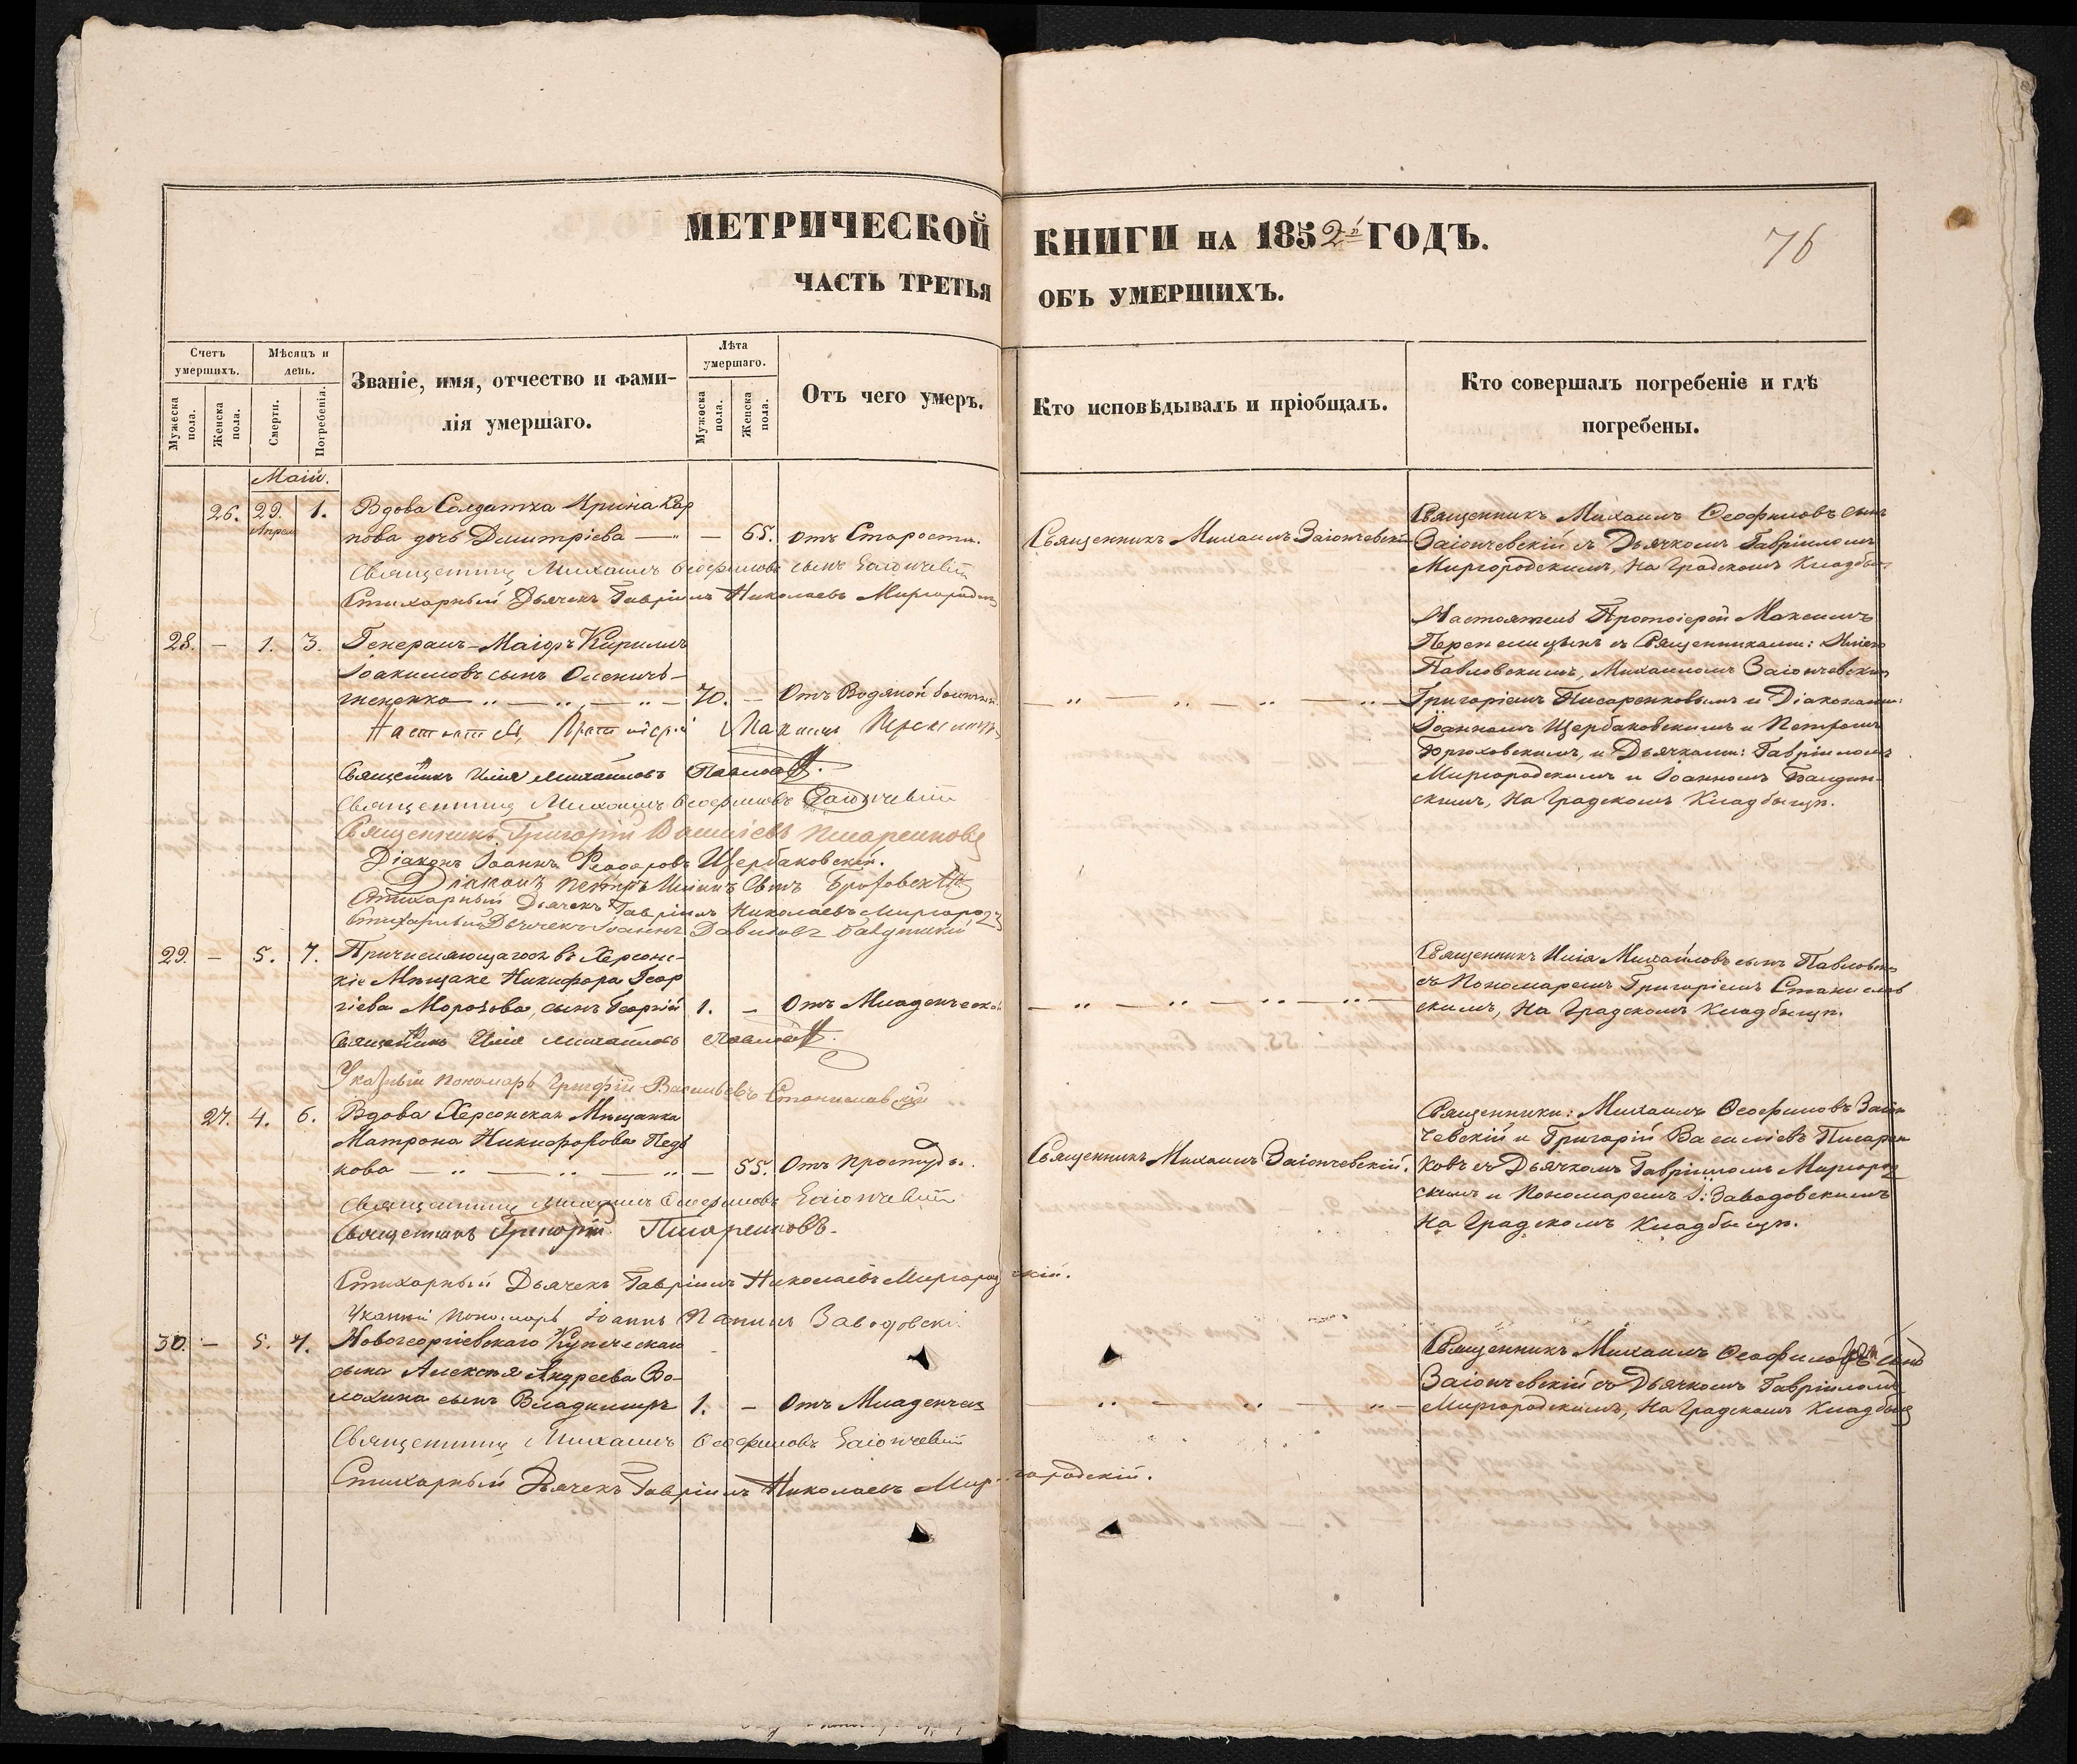 МЕТРИЧЕСКОЙ КНИГИ НА 1852й ГОДЪ.
76
ЧАСТЬ ТРЕТЬЯ ОБЪ УМЕРШИХЪ.
Счетъ умершихъ.
Мѣсяцъ и день.
Званіе, имя, отчество и фами-
лія умершаго.
Лѣта умершаго.
Отъ чего умеръ.
Кто исповѣдывалъ и пріобщалъ.
Кто совершалъ погребеніе и гдѣ
погребены.
Мужеска пола.
Женска пола.
Смерти.
Погребенія.
Мужеска пола.
Женска пола.
Маій.
26. 29. Апрел 1.
Вдова Солдатка Ирина Кар
пова дочь Димитріева — 65. отъ Старости.
Священникъ Михаилъ Заіончевскій
Священникъ Михаилъ Ѳеофиловъ сынъ
Заіончевскій съ Дьячкомъ Гавріиломъ
Миргородскимъ, на Градскомъ Кладбы
Священникъ Михаилъ Ѳеофиловъ сынъ Заіончевскій
Стихарный Дьячекъ Гавріилъ Николаевъ Миргородск
28. — 1. 3. Генералъ-Маіоръ Кириллъ
Іоакимовъ сынъ
70. — Отъ Водяной болѣзни
Настоятель Протоіерей Максимъ
съ Священниками: Иліею
Павловскимъ, Михаиломъ Заіончевскимъ
Григоріемъ Писаренковымъ и Діаконами:
Іоанномъ Щербаковскимъ и Петромъ
и Дьячками: Гавріиломъ
Миргородскимъ и Іоанномъ
скимъ, на Градскомъ Кладбыщѣ.
Настоятель Протоіерей Максимъ
Священникъ Илія Михайловъ
Священникъ Михаилъ Ѳеофиловъ Заіончевскій
Священникъ Григорій Василіевъ Писаренковъ
Діаконъ Іоаннъ Ѳеодоровъ Щербаковскій.
Діаконъ Петръ
Стихарный Дьячекъ Гавріилъ Николаевъ Миргород
Стихарный Дьячекъ Іоаннъ Давидовъ
29. — 5. 7. Причисляющагося въ Херсонс-
кіе Мѣщане Никифора Геор
гіева Морозова, сынъ Георгій 1. — Отъ Младенческой
Священникъ Илія Михайловъ сынъ Павловск
съ Пономаремъ Григоріемъ Станислав
скимъ, на Градскомъ Кладбыщѣ.
Священникъ Илія Михайловъ
Указный пономарь Григорій Васильевъ Станиславскій
27. 4. 6. Вдова Херсонская Мѣщанка
Матрона Никифорова
кова — 55. Отъ простуды.
Священникъ Михаилъ Заіончевскій.
Священники: Михаилъ Ѳеофиловъ Заіон
чевскій и Григорій Василіевъ Писарен
ковъ съ Дьячкомъ Гавріиломъ Миргород
скимъ и Пономаремъ І: Заводовскимъ
на Градскомъ Кладбыщѣ.
Священникъ Михаилъ Ѳеофиловъ Заіончевскій
Священникъ Григорій Писаренковъ.
Стихарный Дьячекъ Гавріилъ Николаевъ Миргородскій.
пономарь Іоаннъ Заводовскі
30. — 5. 7. Новогеоргіевскаго Купеческаго
сына Алексѣя Андреева Во-
лохина сынъ Владимиръ 1. — Отъ Младенчес
Священникъ Михаилъ Ѳеофиловъ сынъ
Заіончевскій съ Дьячкомъ Гавріиломъ
Миргородскимъ, на Градскомъ Кладбыщ
Священникъ Михаилъ Ѳеофиловъ Заіончевскій
Стихарный Дьячекъ Гавріилъ Николаевъ Миргородскій.